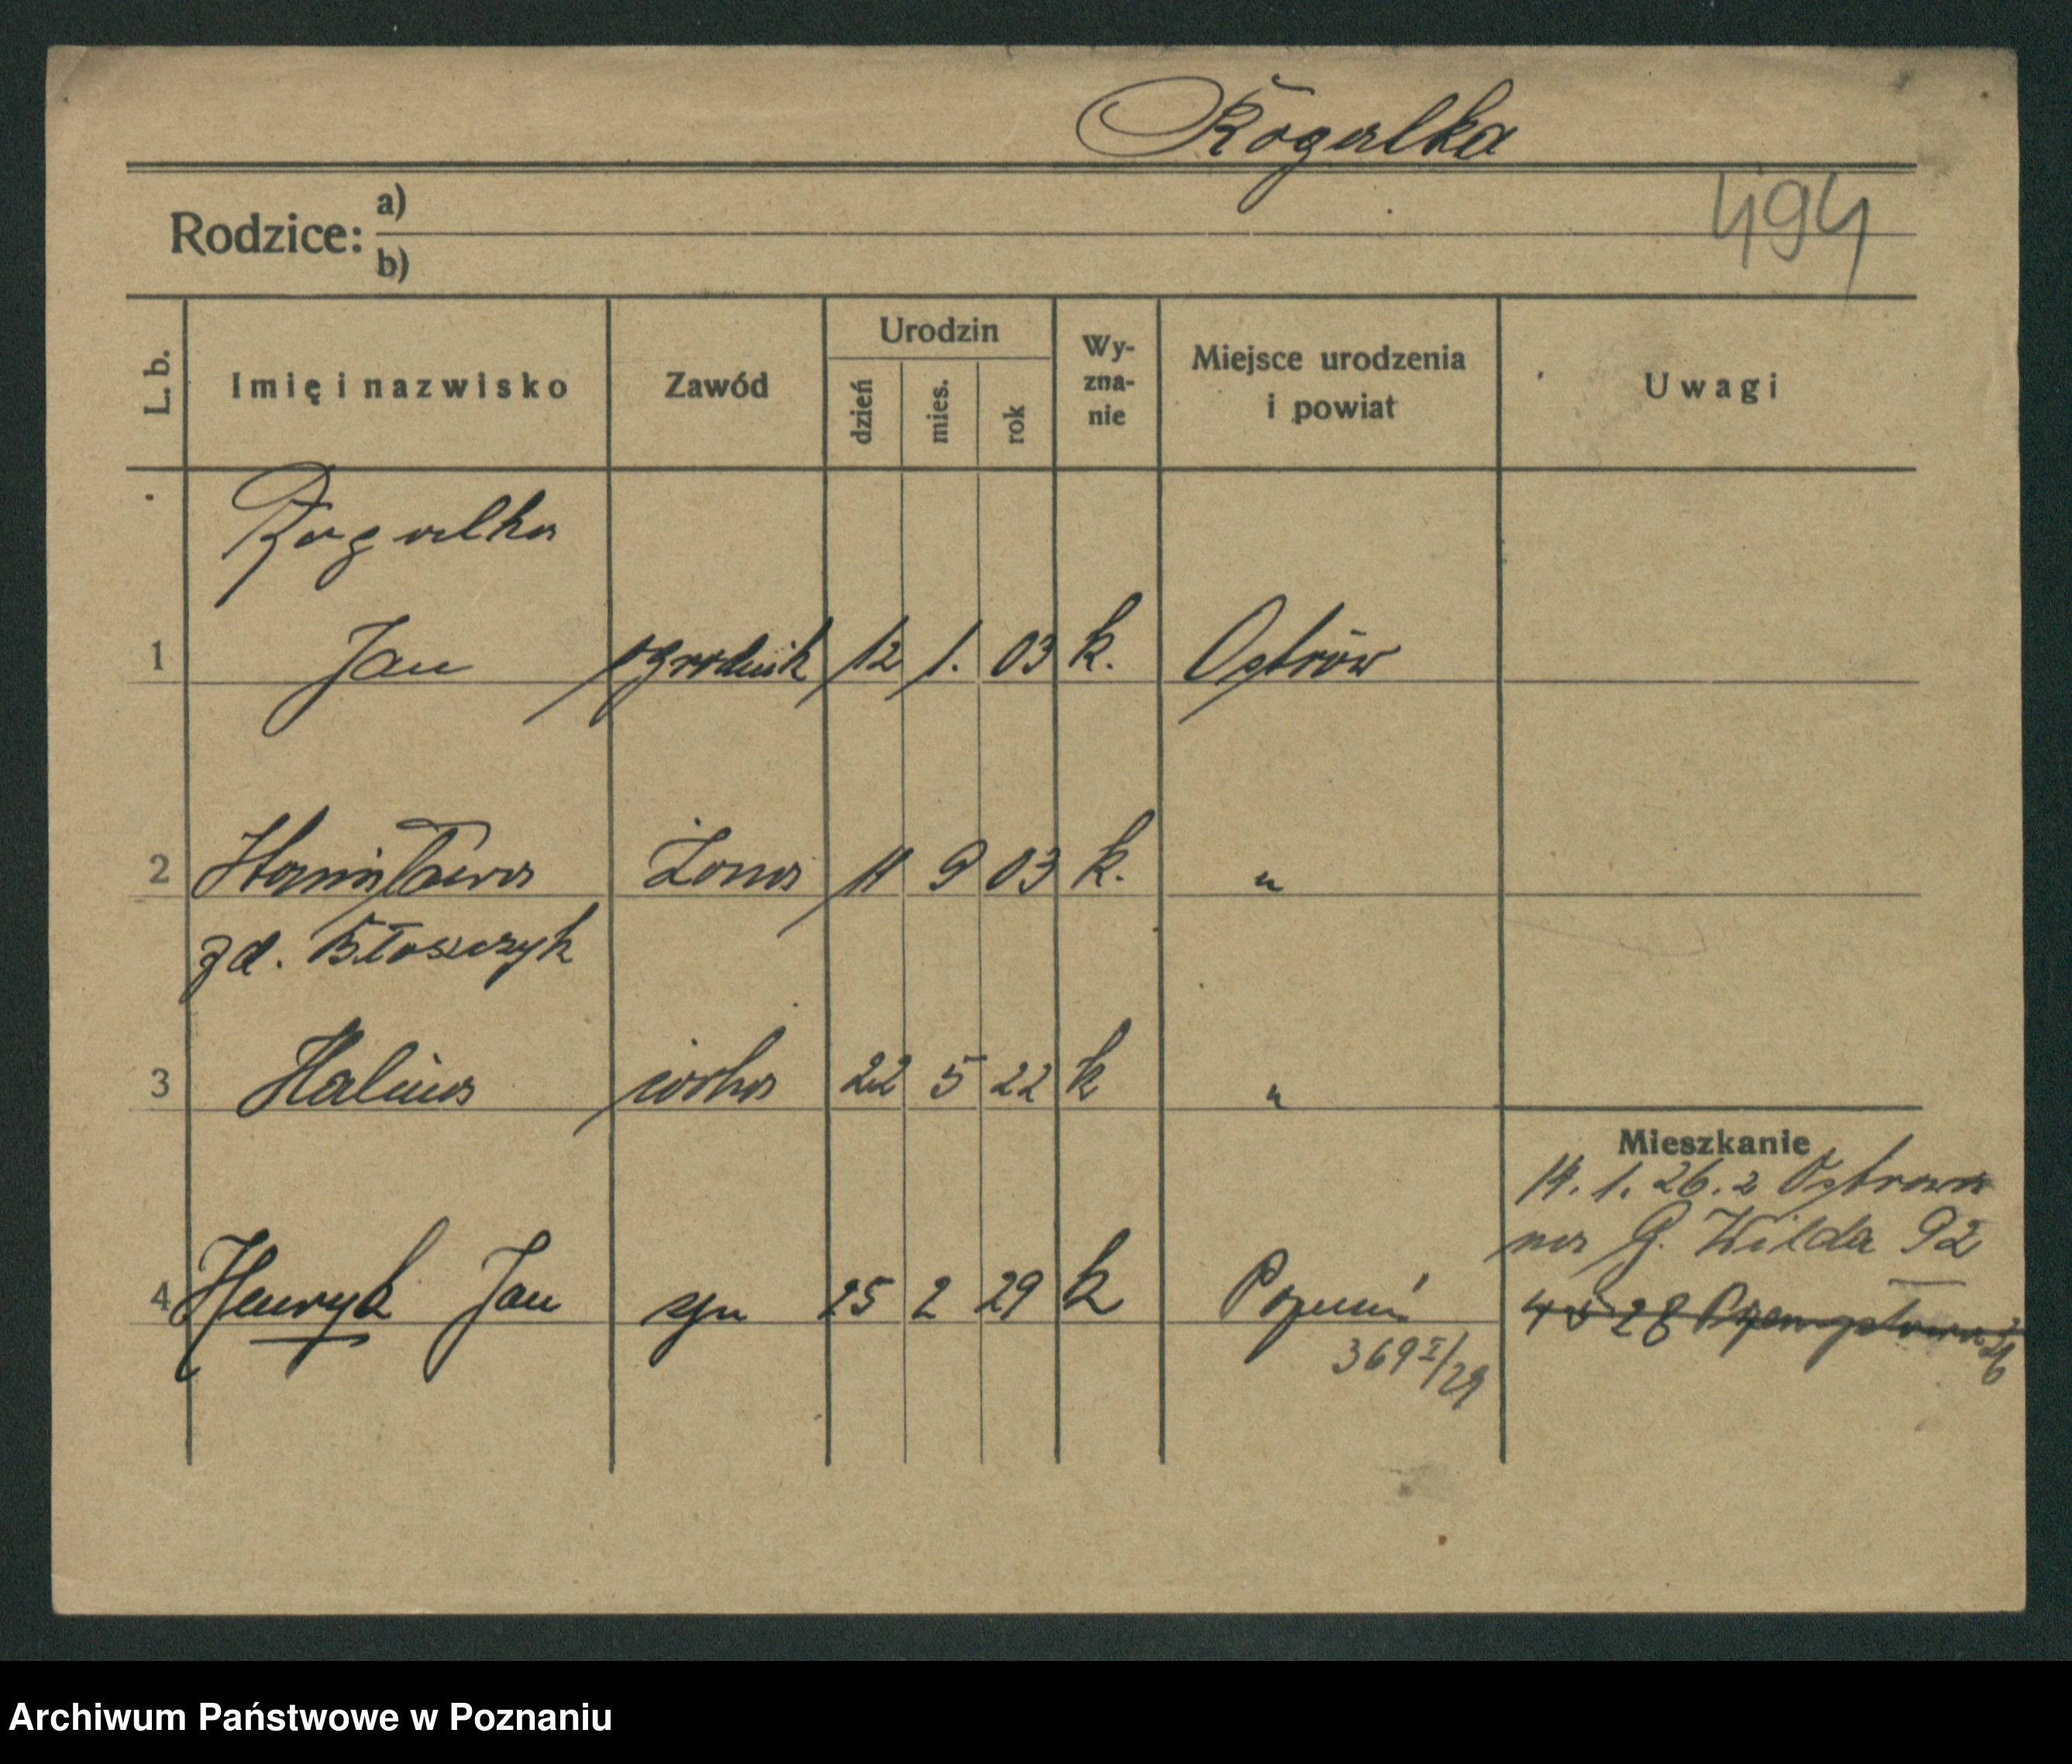 Rogalka
494
Rodzice: a)
b)
L. b. Imię i nazwisko Zawód Urodzin dzień mies. rok Wy-zna-nie Miejsce urodzenia i powiat Uwagi
Rogalka
1 Jan ogrodnik 12 1. 03 k. Ostrów
2 Stanisława Żona 11 9 03 k. "
zd. Błaszczyk
3 Halina córka 22 5 22 k "
Mieszkanie
14. 1. 26. z Ostrowa
na G. Wilda 92
4 Henryk Jan syn 25 2 29 k Poznań
4 5 28 Przemysłowa 26
369 I/29
Archiwum Państwowe w Poznaniu